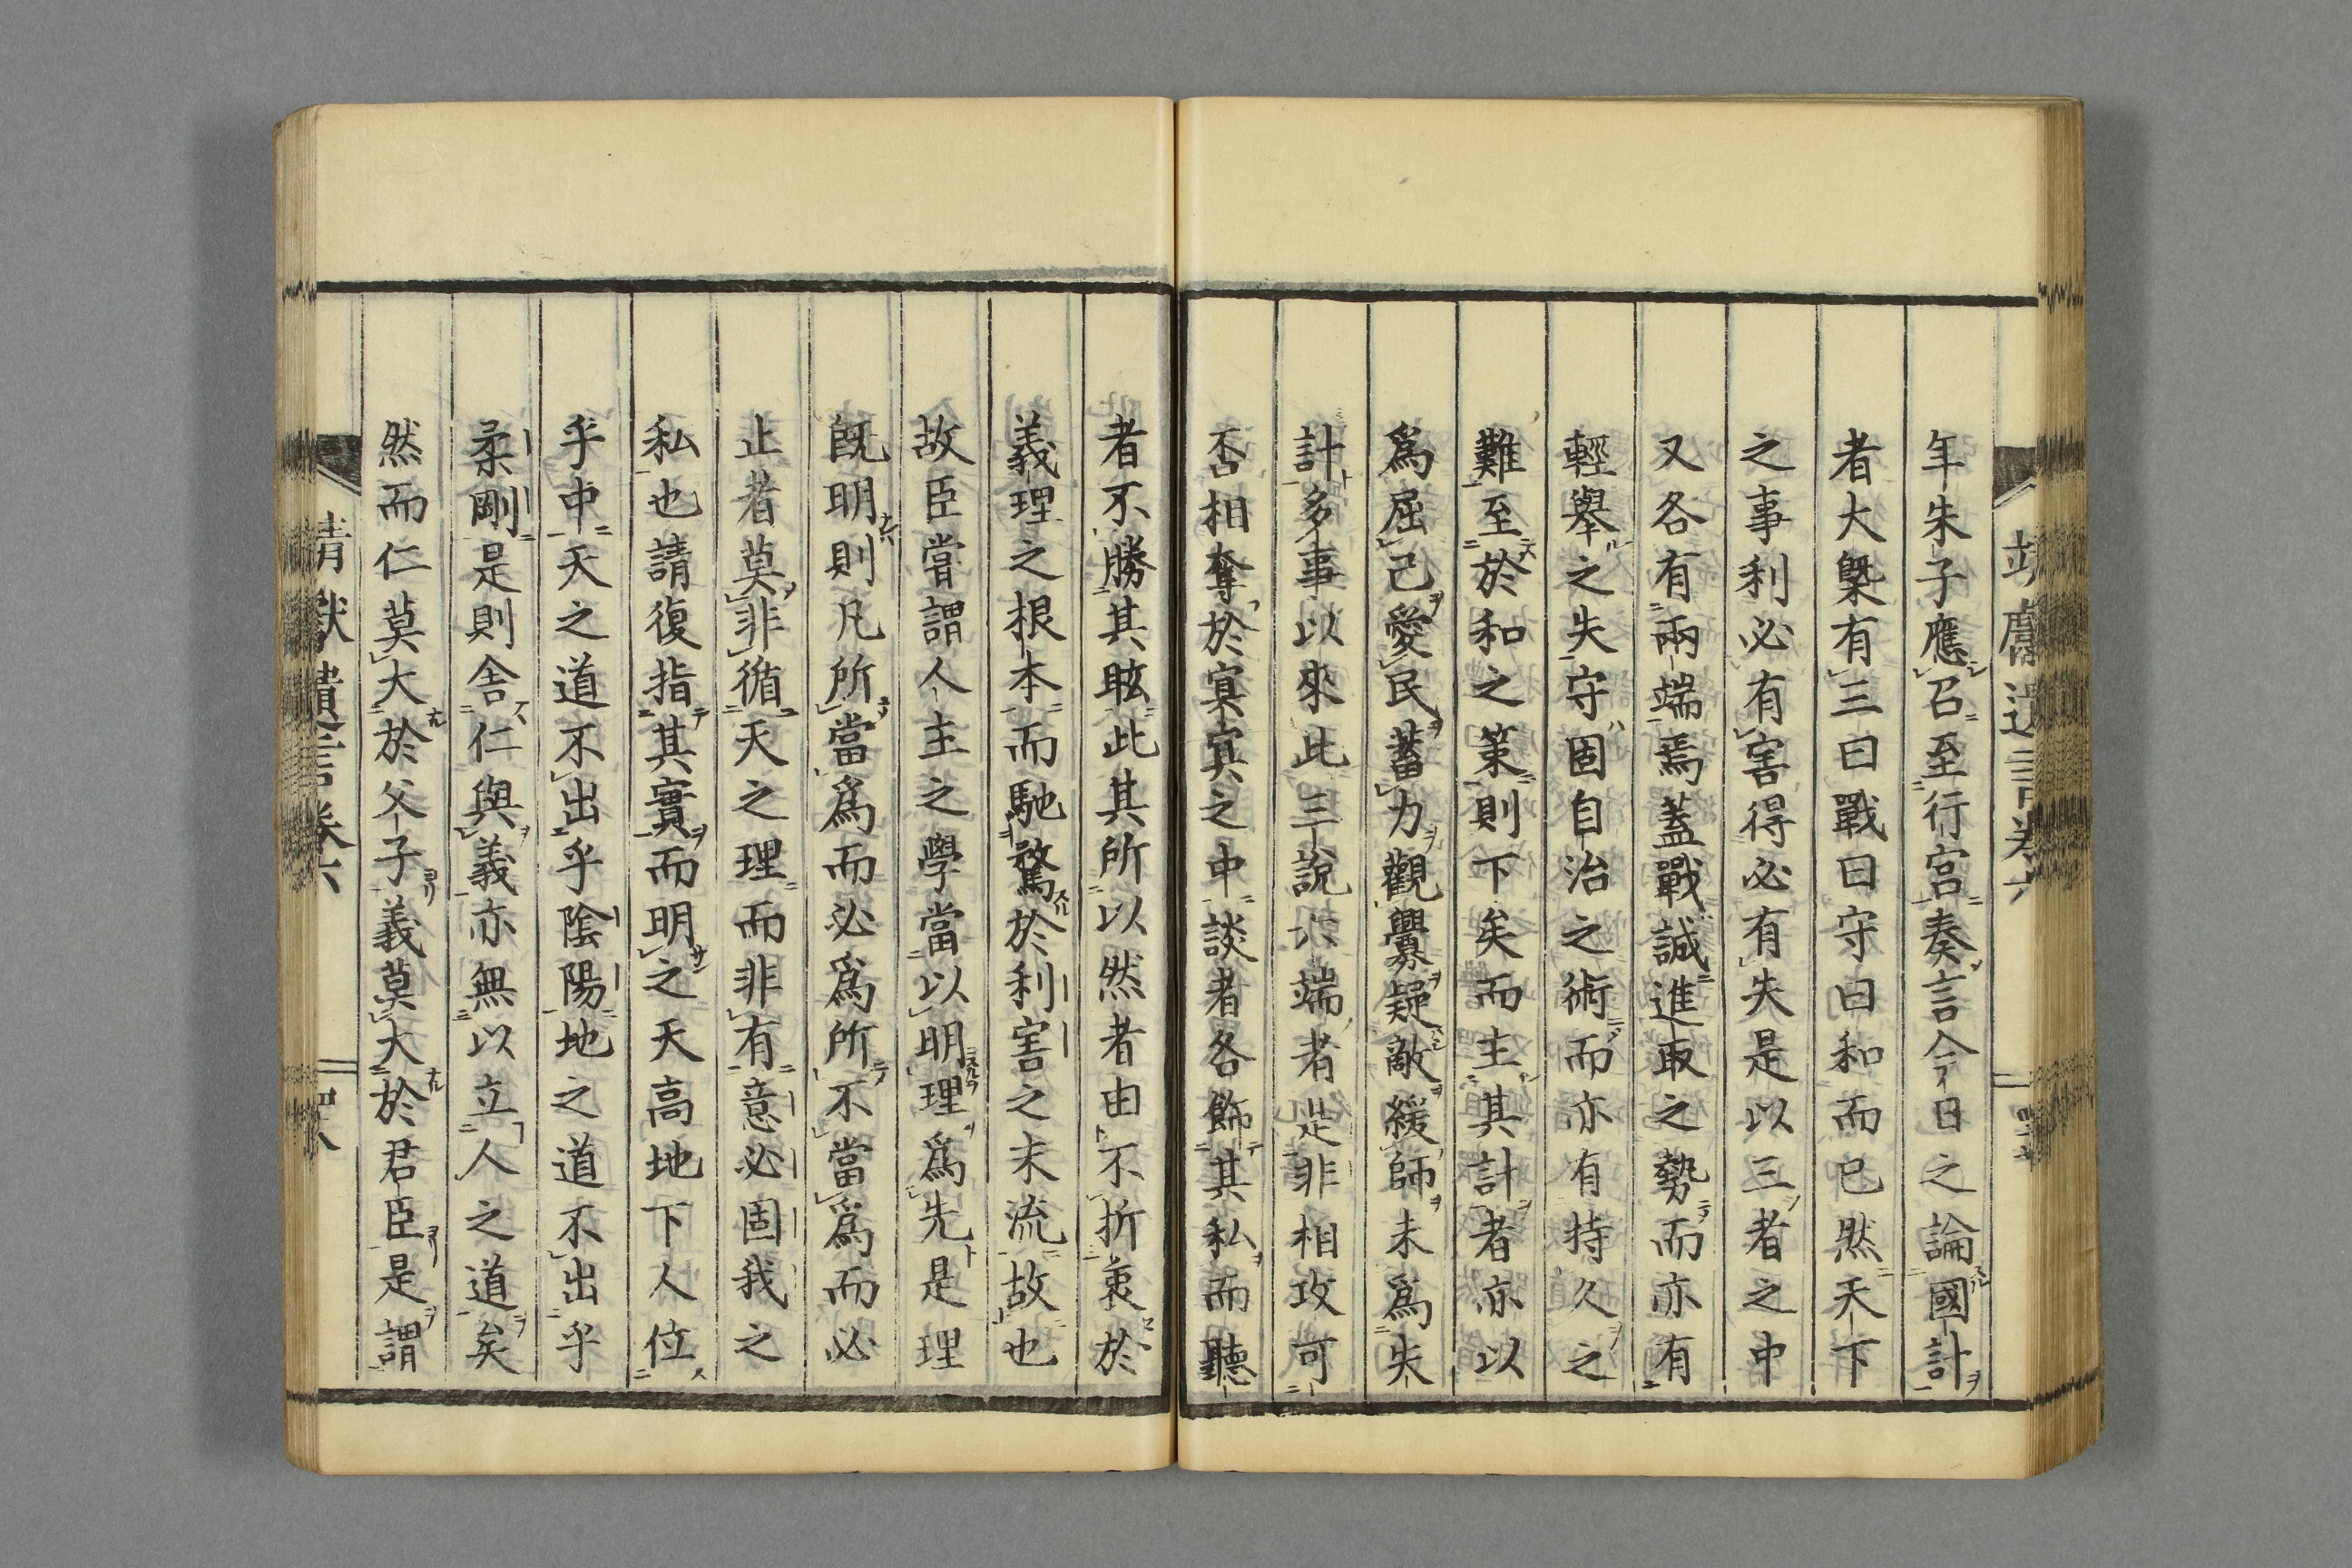 年朱子應召至行宮奏言今日之論國計
者大槩有三曰戰曰守曰和而已然天下
之事利必有害得必有失是以三者之中
又各有兩端焉蓋戰誠進取之勢而亦有
輕舉之失守固自治之術而亦有持久之
難至於和之策則下矣而主其計者亦以
爲屈己愛民蓄力觀釁疑敵緩師未爲失
計多事以來此三說六端者是非相攻可
否相奪於冥冥之中談者各飾其私而聽
者不勝其眩此其所以然者由不折衷於
義理之根本而馳騖於利害之末流故也
故臣嘗謂人主之學當以明理爲先是理
既明則凡所當爲而必爲所不當爲而必
止者莫非循天之理而非有意必固我之
私也請復指其實而明之天高地下人位
乎中天之道不出乎陰陽地之道不出乎
柔剛是則舍仁與義亦無以立人之道矣
然而仁莫大於父子義莫大於君臣是謂
靖獻遺言卷六